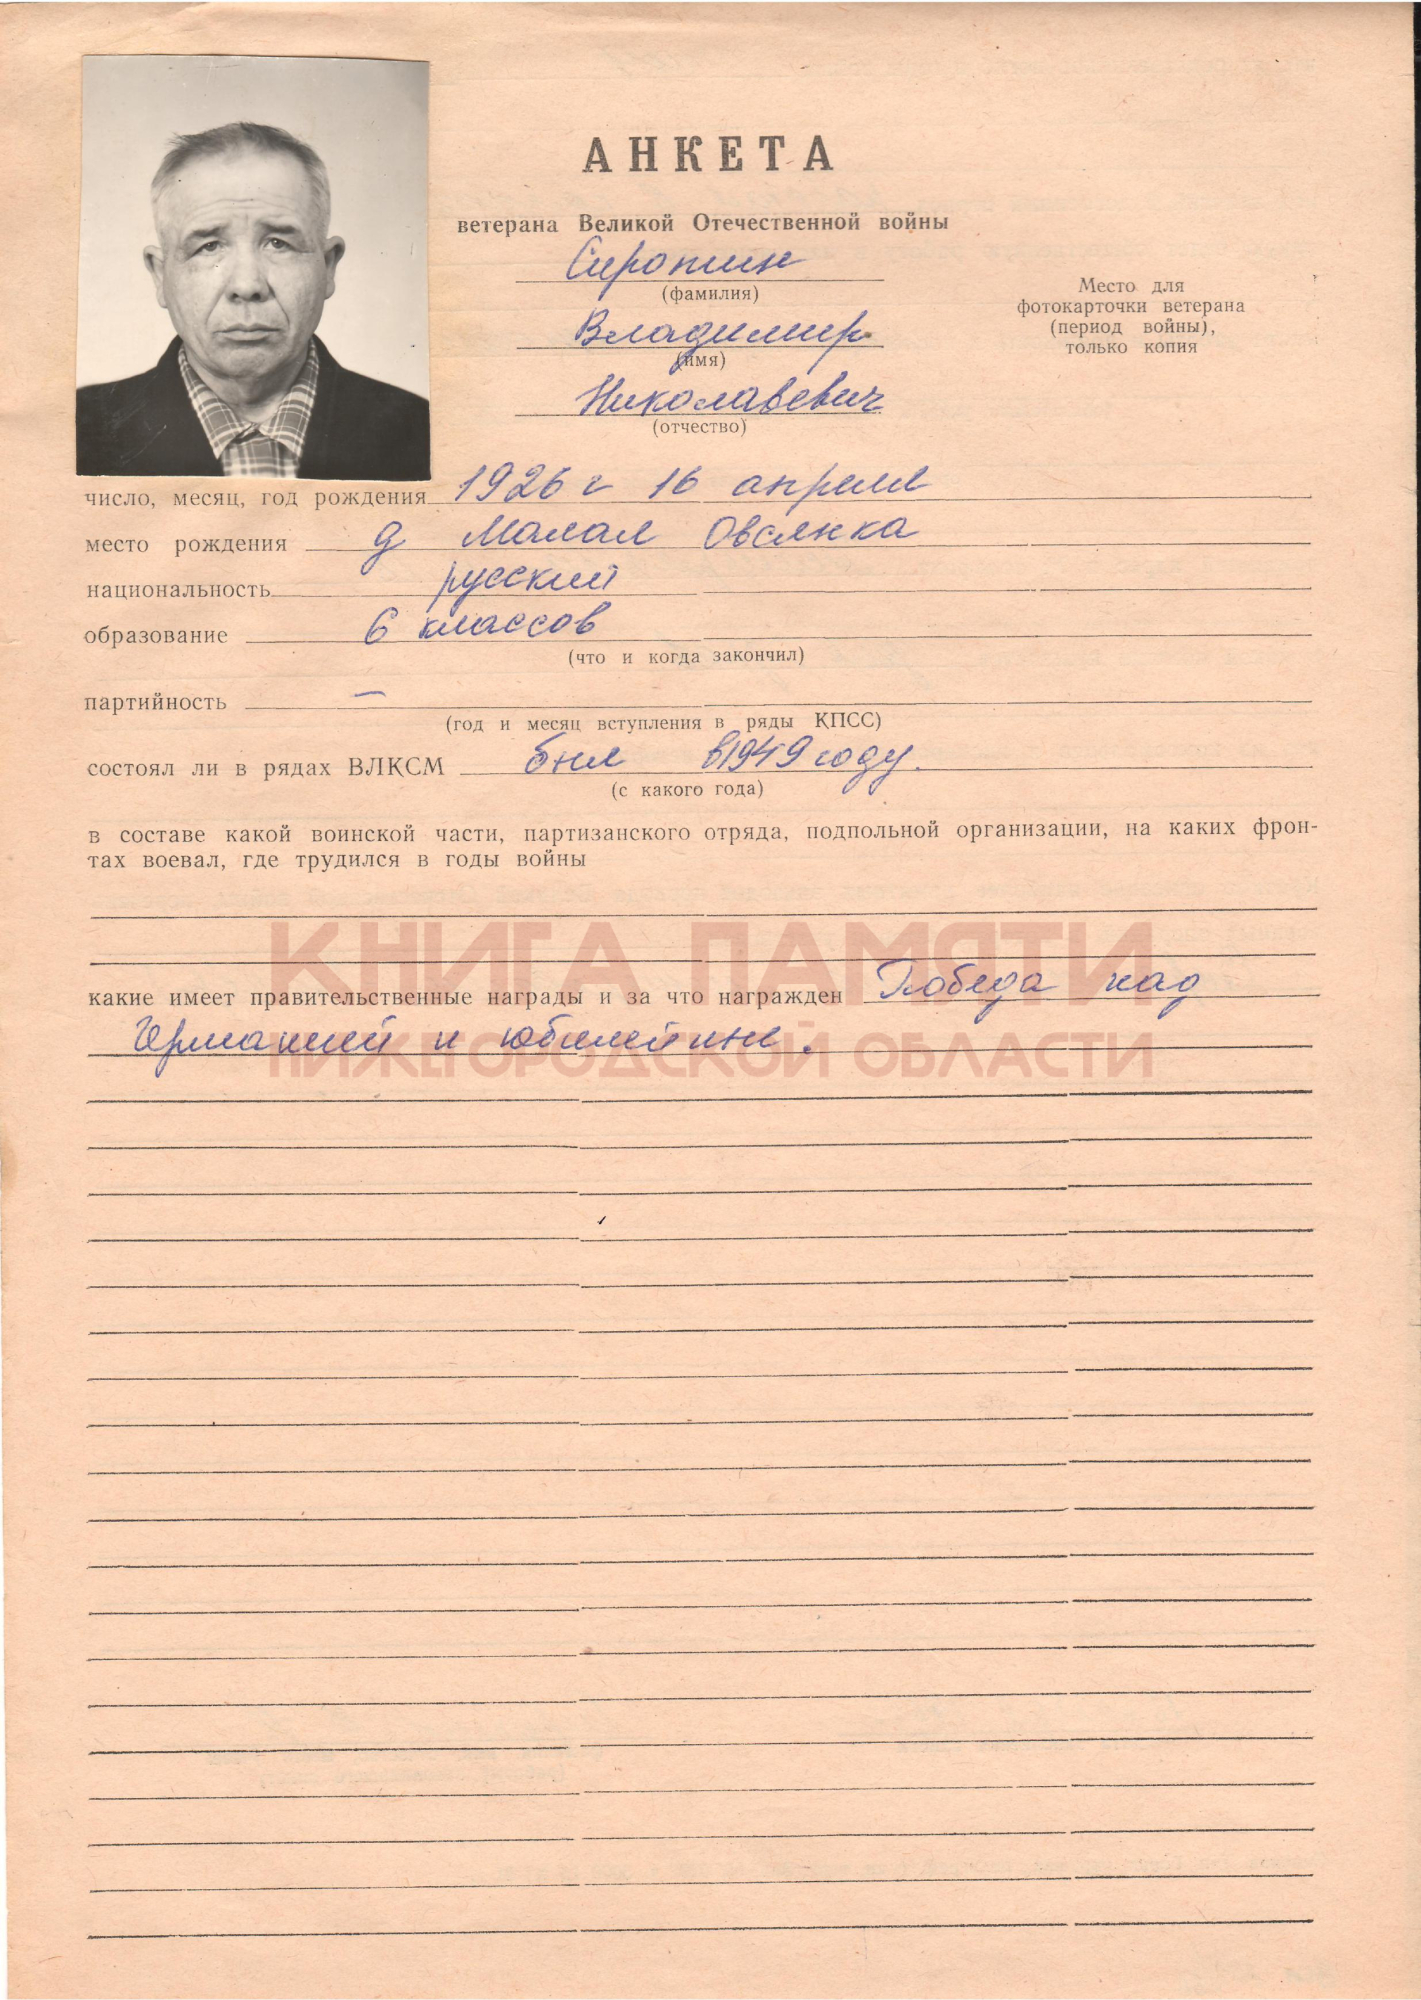 АНКЕТА
ветерана Великой Отечественной войны
Сиротин
(фамилия)
Владимир
(имя)
Николаевич
(отчество)
Место для
фотокарточки ветерана
(период войны),
только копия
число, месяц, год рождения 1926 г 16 апреля
место рождения д Малая Овсянка
национальность русский
образование 6 классов
(что и когда закончил)
партийность —
(год и месяц вступления в ряды КПСС)
состоял ли в рядах ВЛКСМ был в 1949 году.
(с какого года)
в составе какой воинской части, партизанского отряда, подпольной организации, на каких фрон-
тах воевал, где трудился в годы войны
КНИГА ПАМЯТИ
какие имеет правительственные награды и за что награжден Победа над
Германией и юбилейные.
НИЖЕГОРОДСКОЙ ОБЛАСТИ